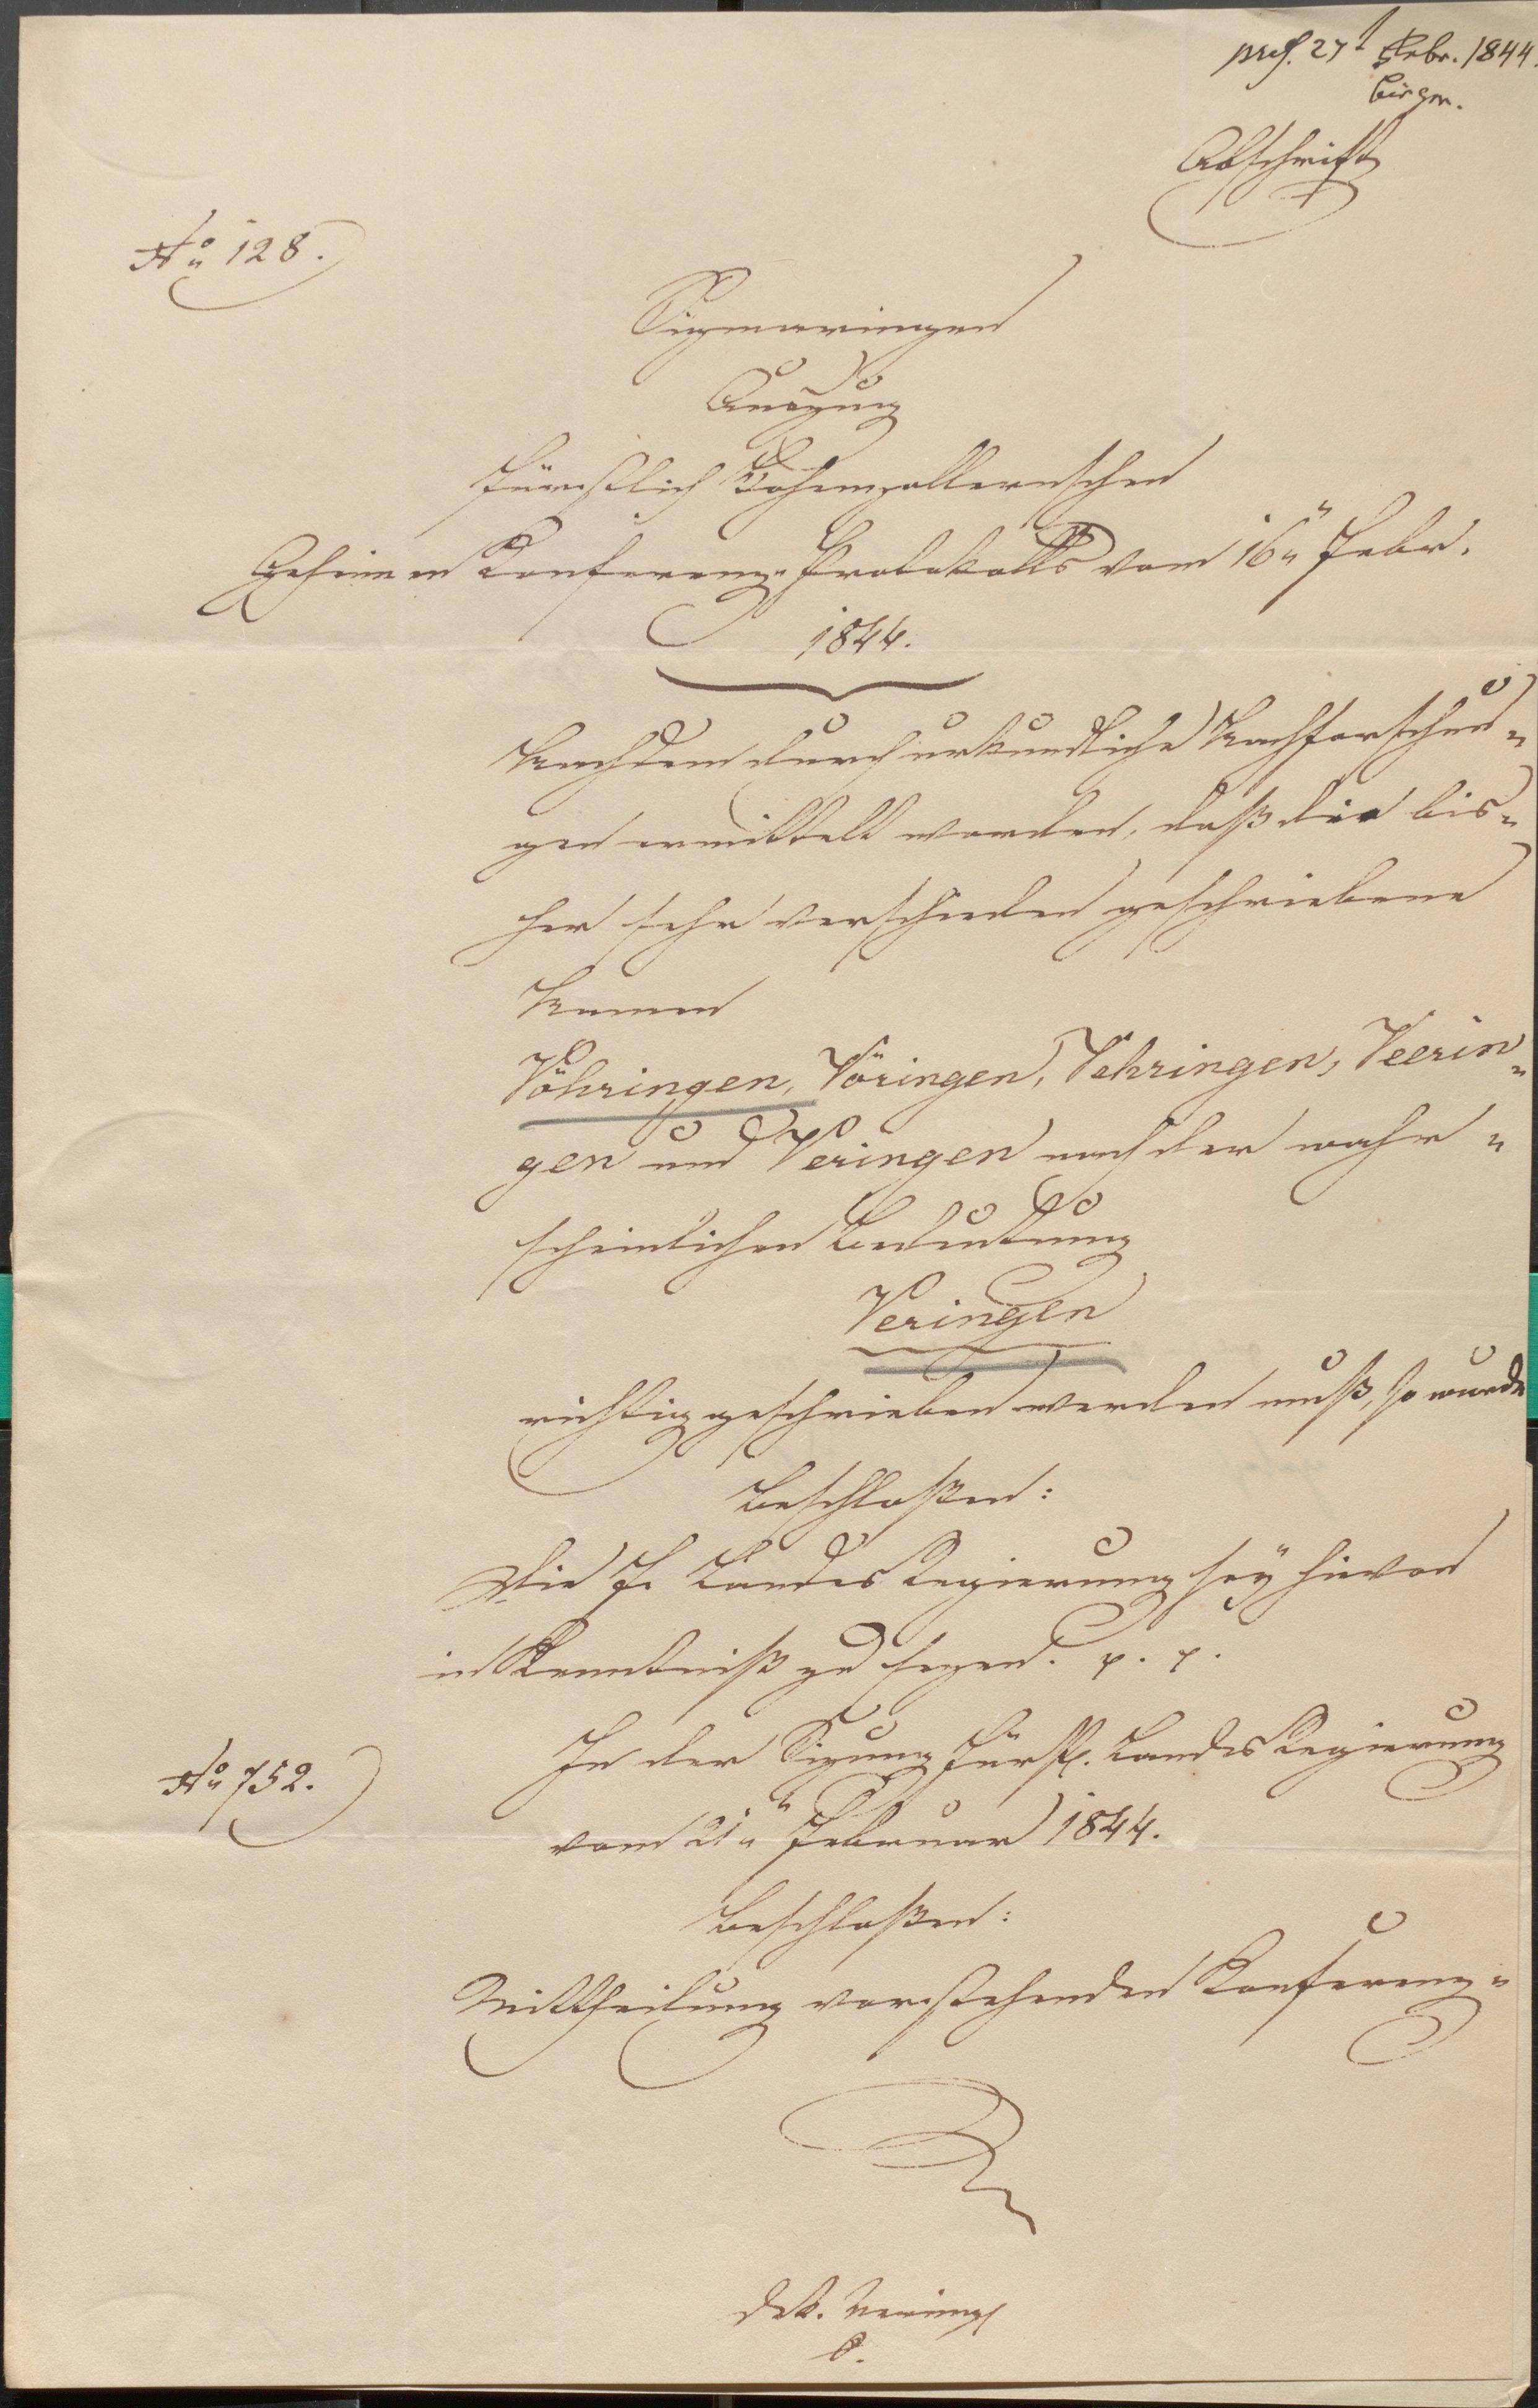 präs. 27t Febr. 1844.
Abschrift
No. 128.
Sigmaringen
Auszug
Fürstlich Hohenzollernschen
Geheimen Konferenz-Protokolls vom 16n Febr.
1844.
Nachdem durch urkundliche Nachforschun-
gen ermittelt worden, daß die bis-
her sehr verschieden geschriebene
Namen
Vöhringen, Vöringen, Vehringen, Veerin-
gen und Veringen nach der wahr-
scheinlichen Bedeutung
Veringen
richtig geschrieben werden muß, so wurde
beschloßen:
Die F. Landes Regierung sey hievon
in Kenntniß zu sezen. p. p.
No. 752.
In der Sizung Fürstl. Landes Regierung
vom 21n Februar 1844.
beschloßen:
Mittheilung vorstehenden Konferenz-
Dek. Vering